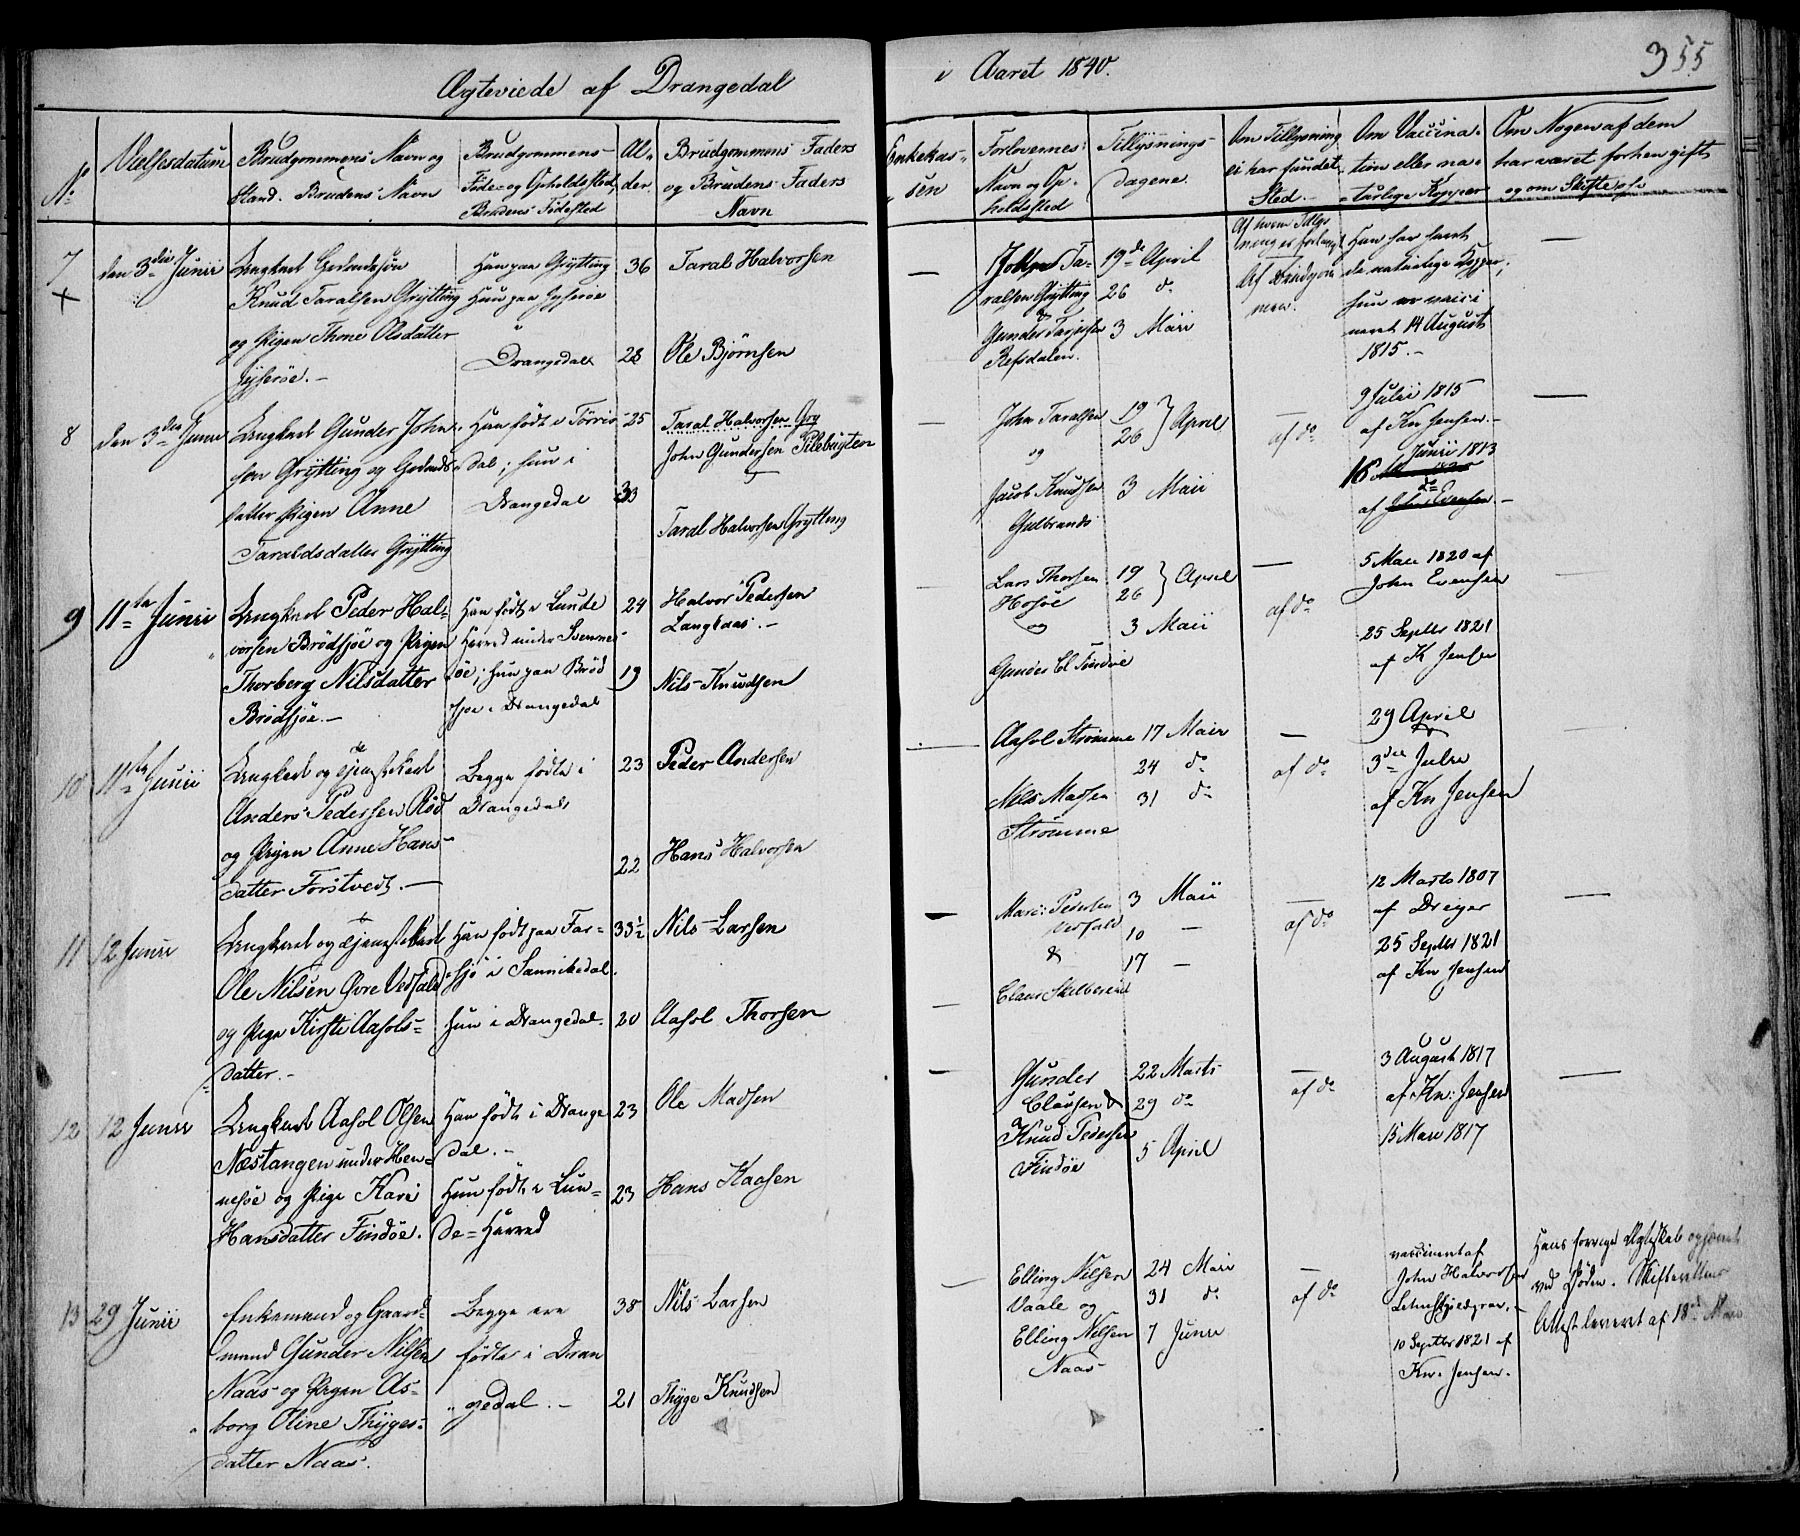 Ægteviede af Drangedal
i Aaret 1840.
355
No
Vielsesdatum
Brudgommens Navn og
Stand. Brudens Navn
Brudgommens
Føde- og Opholdssted,
Brudens Fødested
Al-
der.
Brudgommens Faders
og Brudens Faders
Navn
Enkekas-
sen
Forlovernes
Navn og Op-
holdssted
Tillysnings-
dagene.
Om Tillysning
ei har fundet
Sted.
Om Vaccina-
tion eller na-
turlige Kopper
Om Nogen af dem
har været forhen gift
og om Skifte
7
den 3die Junii
Ungkarl
Knud Taralsen Grytting
og Pigen Thone Olsdatter
Han paa Grytting
Hun paa
Drangedal
36
28
Taral Halvorsen
Ole Bjørnsen
Ta-
ralsen Grytting
Gunder
Refsdalen.
19de April
26 do
3 Maii
Af Brudgom
men.
Han har havt
de naturlige Kopper;
hun er vacci
neret 14 August
1815.
8
den 3die Junii
Ungkarl Gunder John-
sen Grytting og
datter Pigen Anne
Taraldsdatter Grytting
Han født i Tørris-
dal; hun i
Drangedal
25
33
Taral Halvorsen Gry
John Gundersen Pilebugten
Taral Halvorsen Grytting
John Taralsen
og
Jacob Knudsen
Gulbrands
19
26 } April
3 Maii
af do
9 Julii 1815
af Kn Jensen.
Junii 1813
16
af John Evensen
9
11te Junii
Ungkarl Peder Hal-
vorsen Brødsjøe og Pigen
Thorberg Nilsdatter
Brødsjøe.
Han født i Lunde
Herred under
øe; hun paa Brød
sjøe i Drangedal
24
19
Halvor Pedersen
Langkaas.
Nils Knudsen
Lars Thorsen
Hosøe
og
Gunder
19
26 } April
3 Maii
af do
5 Maii 1820 af
John Evensen
25 Septbr 1821
af K Jensen
10
11te Junii
Ungkarl og Tjenestekarl
Anders Pedersen Rød
og Pigen Anne Hans-
datter Forstvedt.
Begge fødte i
Drangedal
23
22
Peder Andersen
Hans Halvorsen
Aasol Strømme
Nils Madsen
Strømme
17 Maii
24 do
31 do
af do
29 April
3die Julii
af Kn Jensen
11
12 Junii
Ungkarl og Tjenestekarl
Ole Nilsen Øvre Vefald
og Pige Kirsti Aasols-
datter.
Han født paa Far-
sjø i Sannikedal.
hun i Drangedal.
33½
20
Nils Larsen
Aasol Thorsen
Pedersen
&
3 Maii
10 —
17 —
af do
12 Marts 1807
af Dreyer
25 Septbr 1821
af Kn Jensen
12
12 Junii
Ungkarl Aasol Olsen
Næstangen under Hen-
nesøe og Pige Kari
Hansdatter Findøe.
Han født i Drange
dal.
Hun født i Lun-
de- Herred
23
23
Ole Madsen
Hans Kaasen
Gunder
Clausen &
Knud Pedersen
Findøe
22 Marts
29 do
5 April
af do
3 August 1817
af Kn: Jensen
15 Maii 1817
13
29 Junii
Enkemand og Gaard-
mand Gunder Nilsen
Naas og Pigen As-
borg Oline Thyges-
datter Naas.
Begge ere
fødte i Dran
gedal.
38
21
Nils Larsen
Thyge Knudsen
Elling Nilsen
Vaale og
Elling Nilsen
Naas
24 Maii
31 do
7 Junii
af do
vaccineret af
John Halvorsen
10 Septbr 1821 af
Kn. Jensen.
Hans forrige Ægteskab ophævet
ved Døden. Skifteretten
Attest leveret af 18de Maii